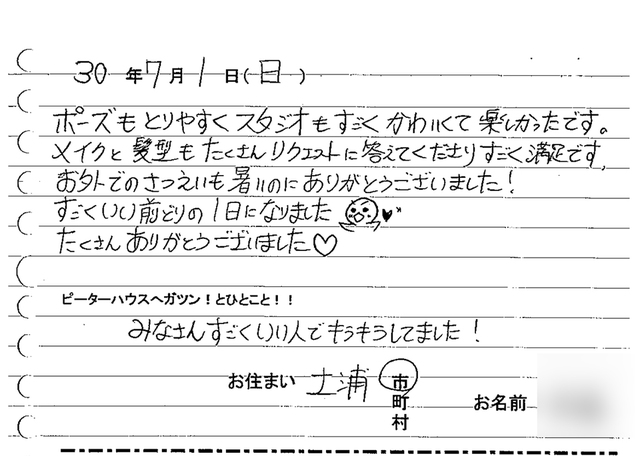 30年7月1日(日)
ポーズもとりやすくスタジオもすごくかわいくて楽しかったです。
メイクと髪型もたくさんリクエストに答えてくださりすごく満足です。
お外でのさつえいも暑いのにありがとうございました！
すごくいい前どりの1日になりました
たくさんありがとうございました♡
ピーターハウスへガツン！とひとこと！！
みなさんすごくいい人でもうもうしてました！
お住まい 土浦 市
町
村
お名前